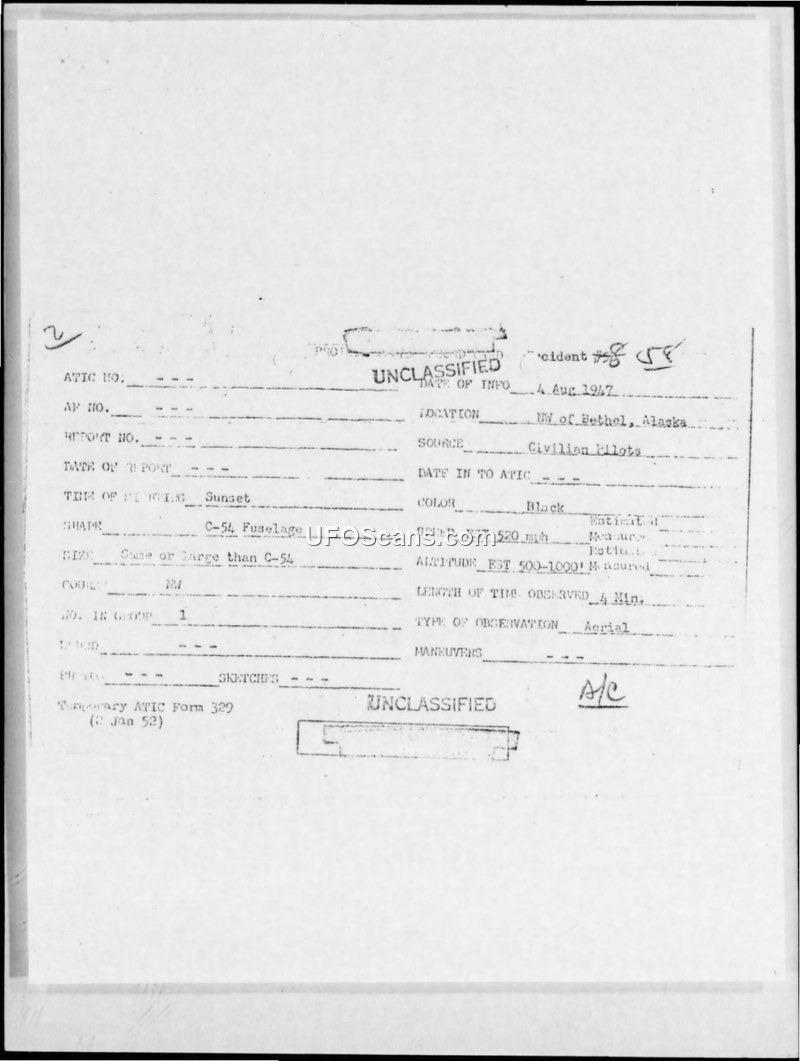 2
Incident #58 58
UNCLASSIFIED
ATIC NO. - - -
DATE OF INFO 4 Aug 1947
AF NO. - - -
LOCATION NW of Bethel, Alaska
REPORT NO. - - -
SOURCE Civilian Pilots
DATE OF REPORT - - -
DATE IN TO ATIC - - -
TIME OF SIGHTING Sunset
COLOR Black
SHAPE C-54 Fuselage
SPEED EST 520 mph Estimated
Measured
SIZE Same or large than C-54
ALTITUDE EST 500-1000' Estimated
Measured
COURSE NW
LENGTH OF TIME OBSERVED 4 Min.
NO. IN GROUP 1
TYPE OF OBSERVATION Aerial
SOUND - - -
MANEUVERS - - -
PHOTOS - - - SKETCHES - - -
Temporary ATIC Form 329
(2 Jan 52)
UNCLASSIFIED
A/C
UFOScans.com